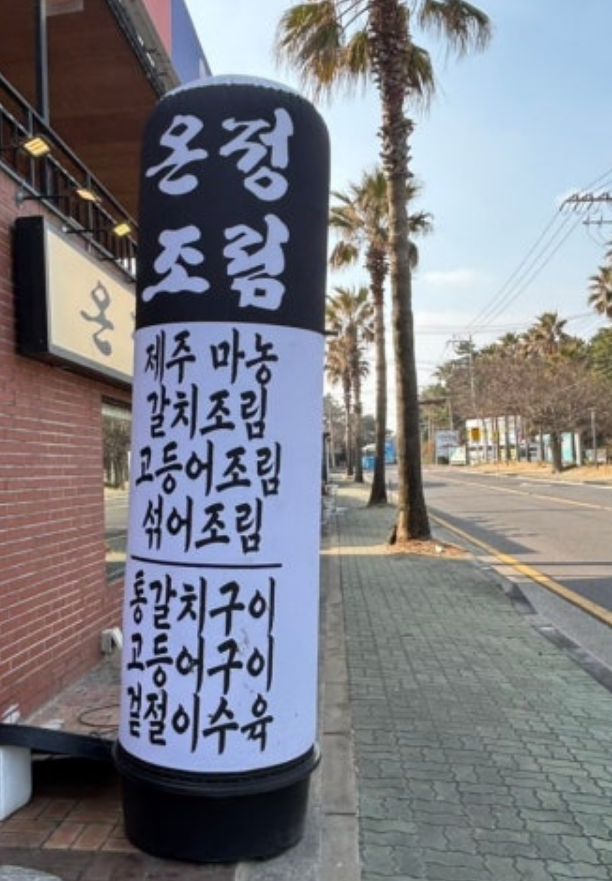 온정
조림
제주 마농
갈치조림
고등어조림
섞어조림
통갈치구이
고등어구이
겉절이수육
온